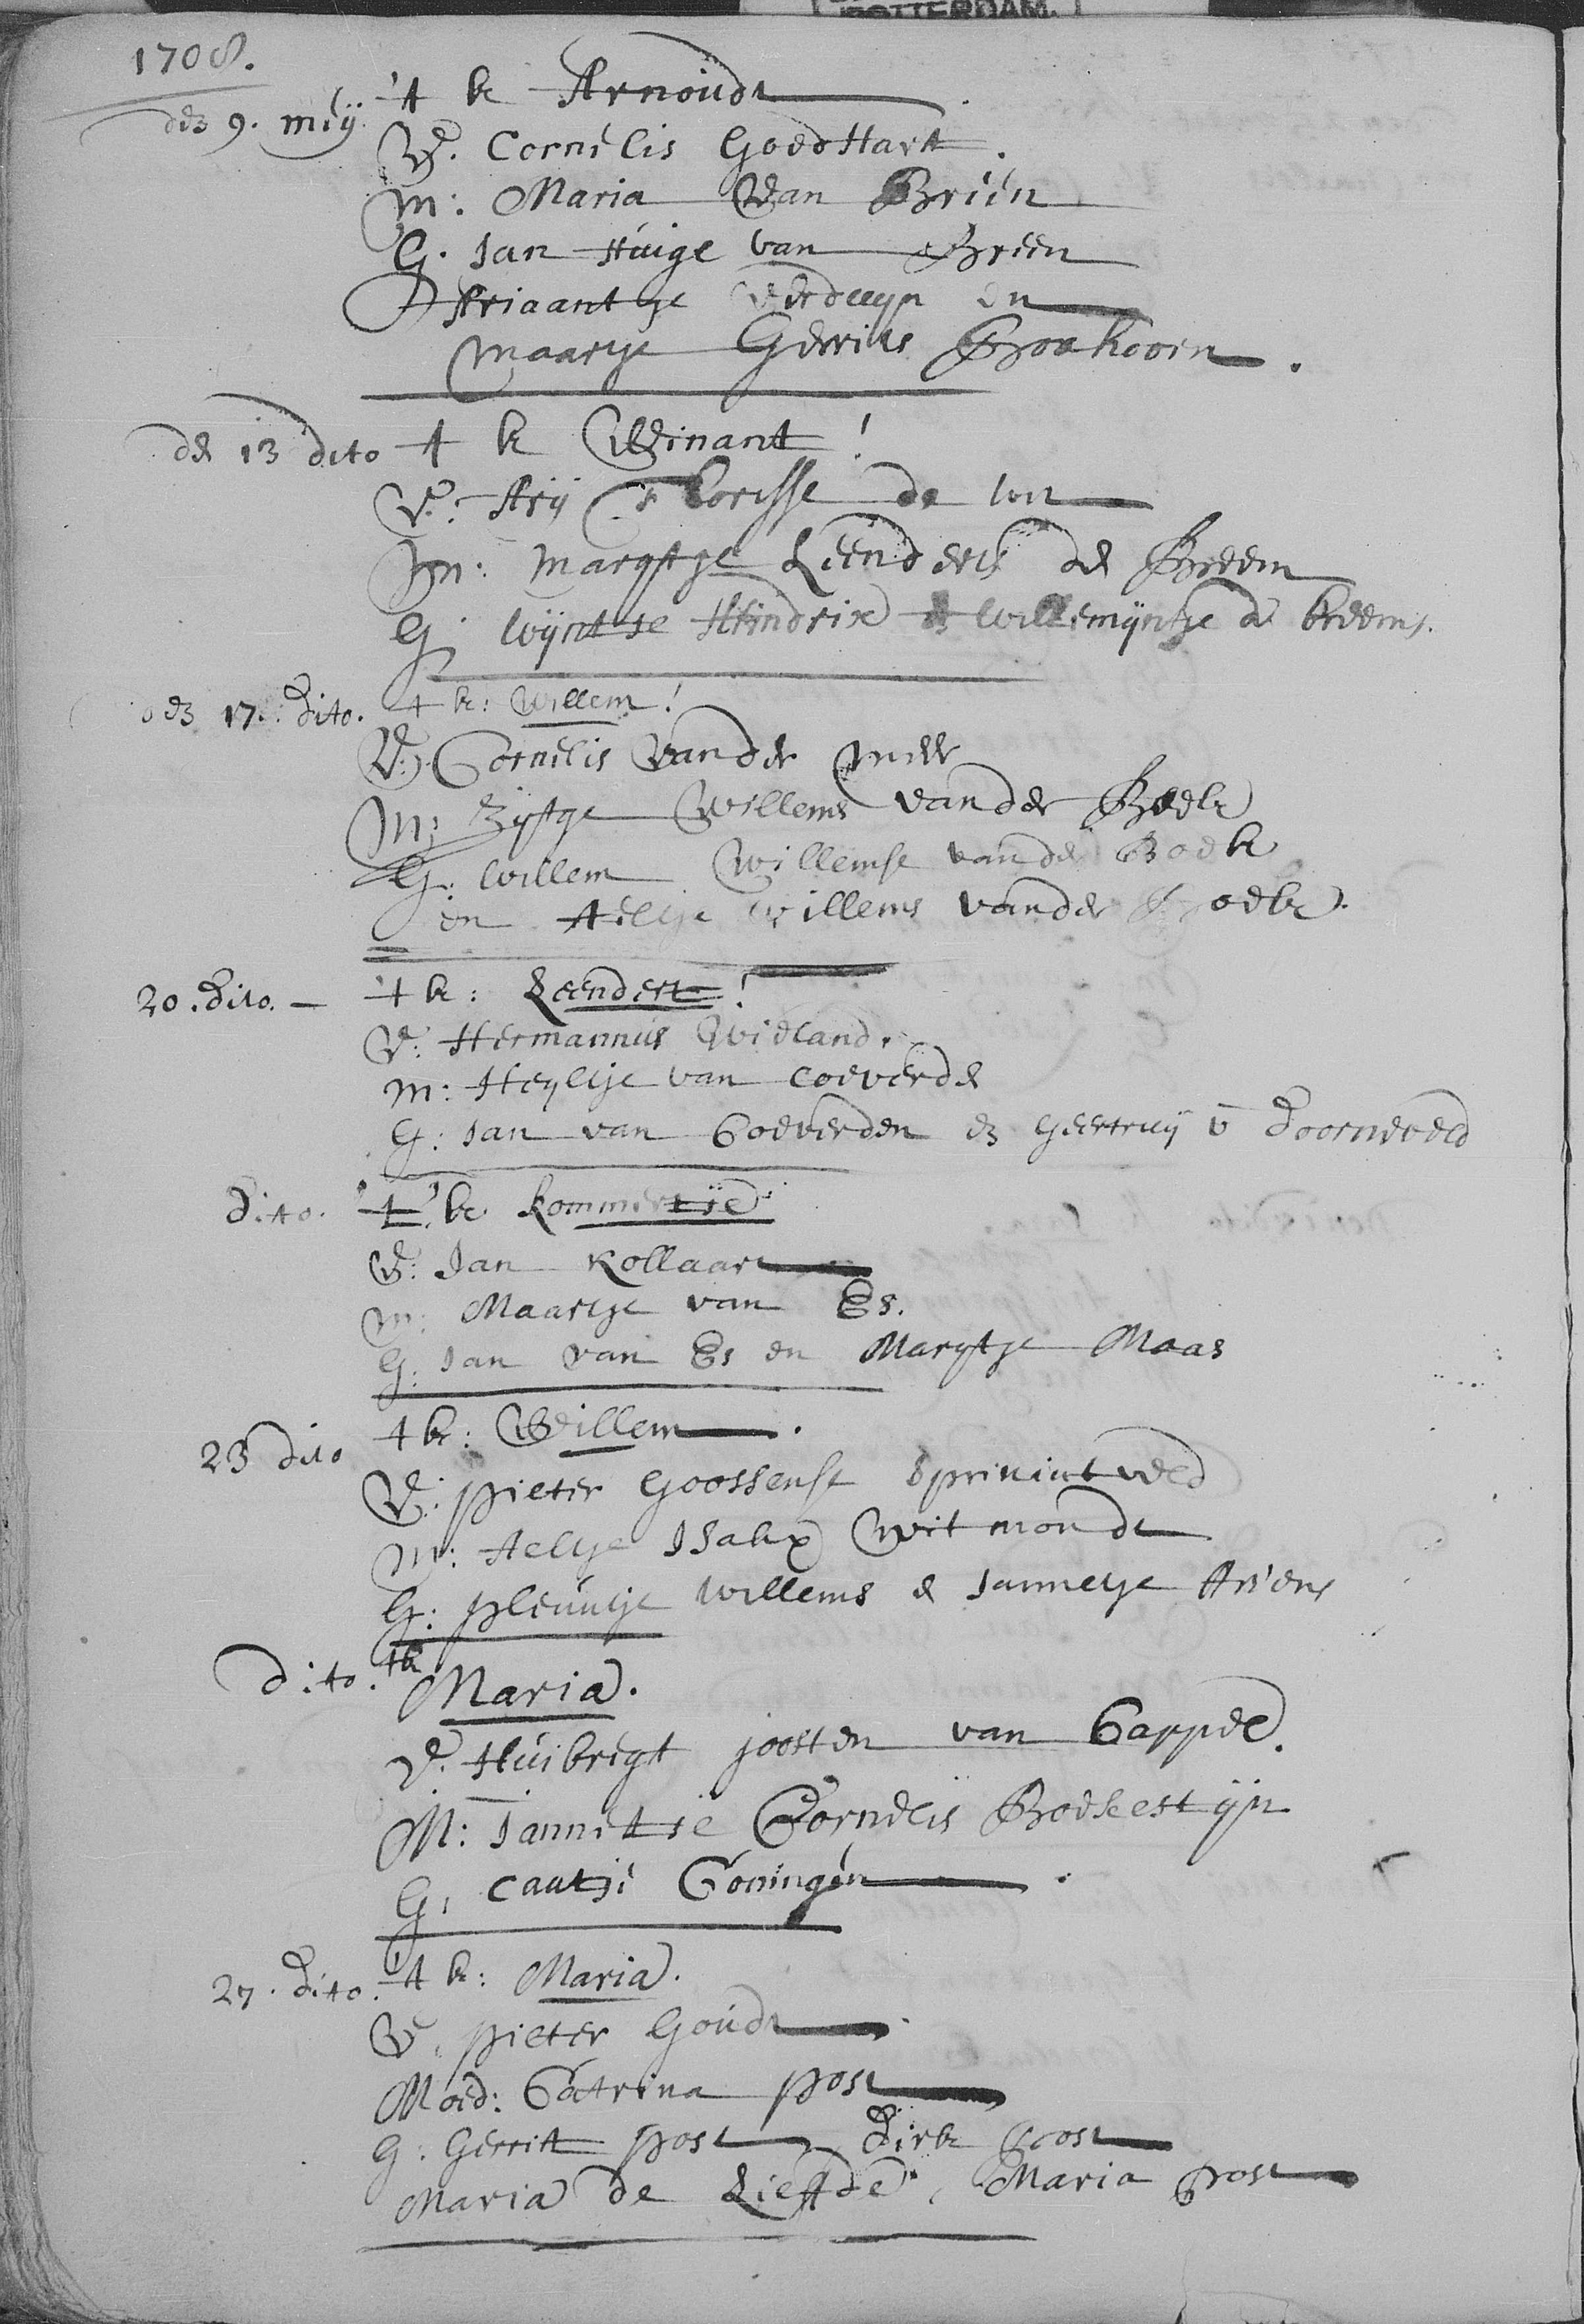 ROTTERDAM.
1708.
den 9. meij 't k Arnoudt
V. Cornelis Goedhart.
M: Maria van Brien
G. Jan Huige van Breen
Ariaantje Verduyn en
Maartje Gerrits
de 13 dito t k Winant!
V: Arij Lorisse de wit
M: Marytje Leenders de Breem
G: Wijntje Hendrix en Willemijntje de Breems.
den 17. dito. t k: Willem!
V: Cornelis vander Meer
M: Zijtge Willems vander Boek
G: Willem Willemse vander Boek
en Aeltje Willems vander Boek.
20. dito. - 't k: Leendert!
V: Hermannus Wieland.
M: Heyltje van Coeverde
G: Jan van Coeverden en Geertruij v Doorneveld
dito. 't k Kommertje
V: Jan Kollaart
M: Maartje van Es.
G: Jan van Es en Marytje Maas
23 dito t k: Willem.
V: Pieter Goossense
M: Aeltje Isakx Witmondt
G: Pleuntje Willems & Jannetje Ariens
dito. tk Maria.
V. Huibregt Joosten van Cappel.
M: Jannetje Cornelis Boesestijn
G: Caatje Coningen.
27. dito. 't k: Maria.
V. Pieter Goudt
Moed: Catrina Post
G: Gerrit Post, Dirk Post
Maria de Liefde, Maria Post